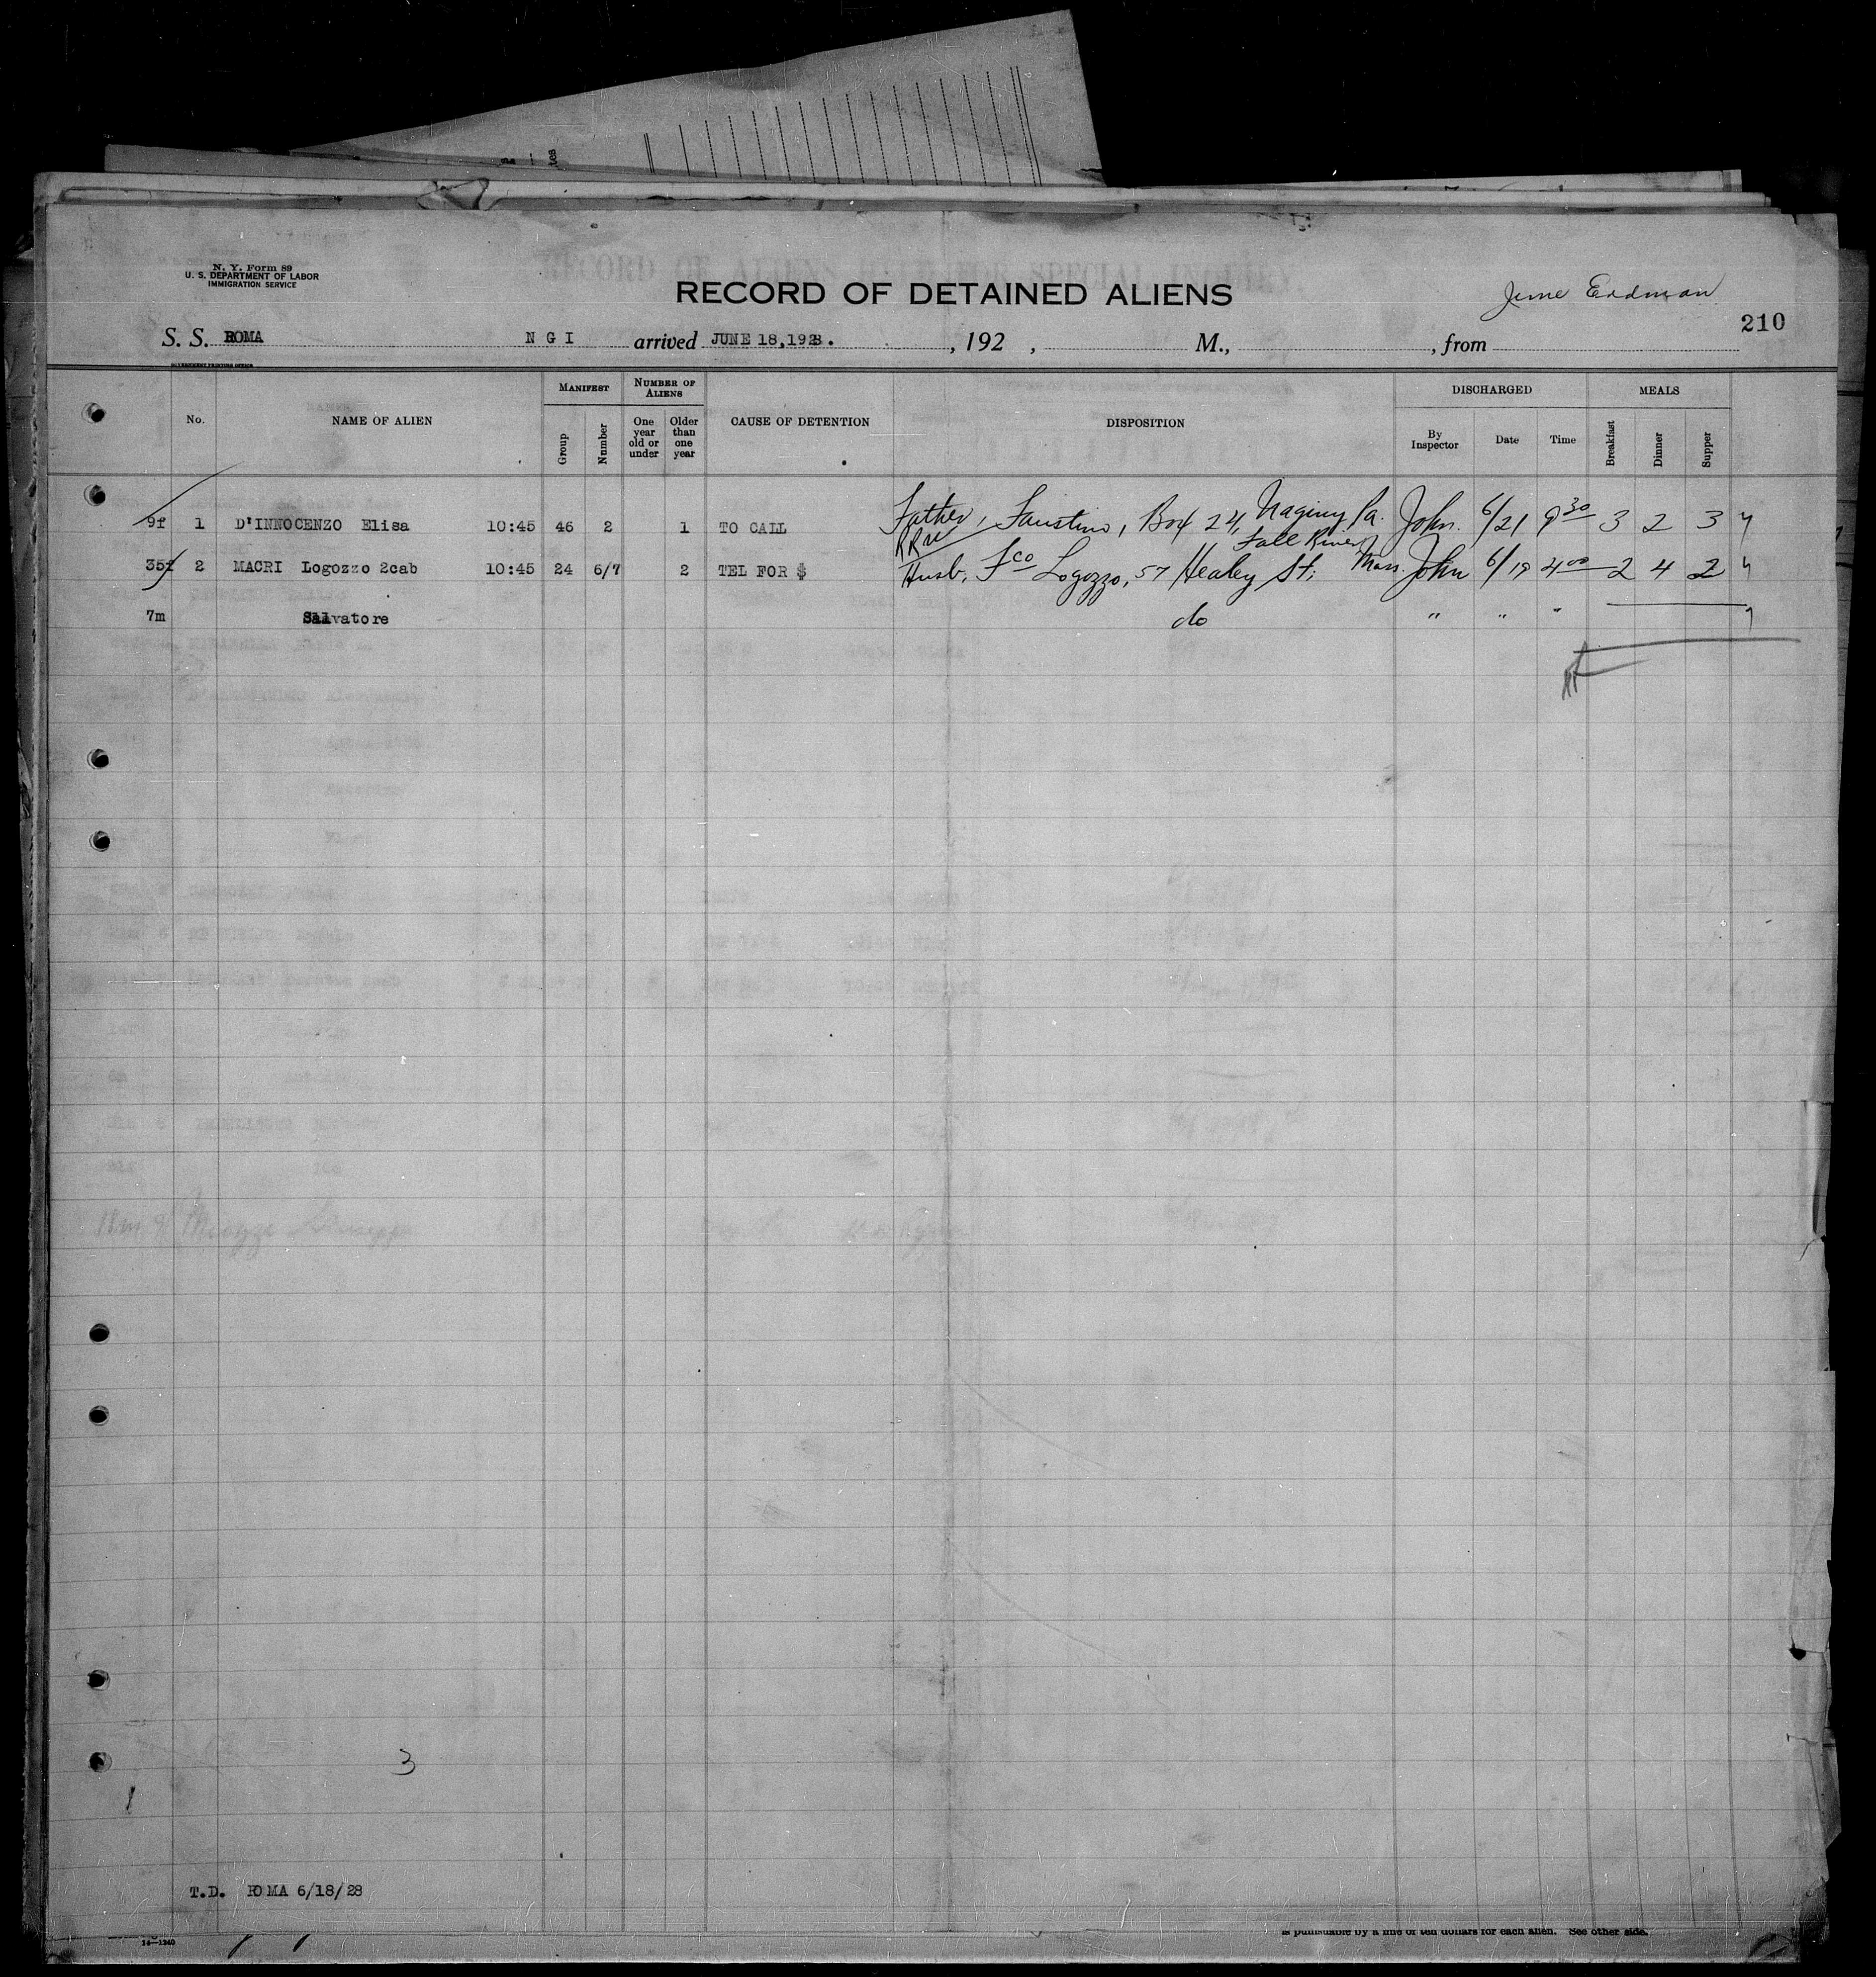 N. Y. Form 89
U. S. DEPARTMENT OF LABOR
IMMIGRATION SERVICE
RECORD OF DETAINED ALIENS
June Erdman
210
S. S. ROMA N G I arrived JUNE 18,1928. , 192 , M., , from
GOVERNMENT PRINTING OFFICE
No. NAME OF ALIEN MANIFEST Group Number NUMBER OF ALIENS One year old or under Older than one year CAUSE OF DETENTION DISPOSITION DISCHARGED By Inspector Date Time MEALS Breakfast Dinner Supper
9f 1 D'INNOCENZO Elisa 10:45 46 2 1 TO CALL Father, Faustino, Box 24, Naginey Pa. John. 6/21 9 30 3 2 3
35f 2 MACRI Logozzo 2cab 10:45 24 6/7 2 TEL FOR $ Husb, Fco Logozzo, 57 Healey St; Fall River Mass. John 6/19 4 00 2 4 2
7m Salvatore do " " "
3
T.D. ROMA 6/18/28
14—1240
is punishable by a fine of ten dollars for each alien. See other side.